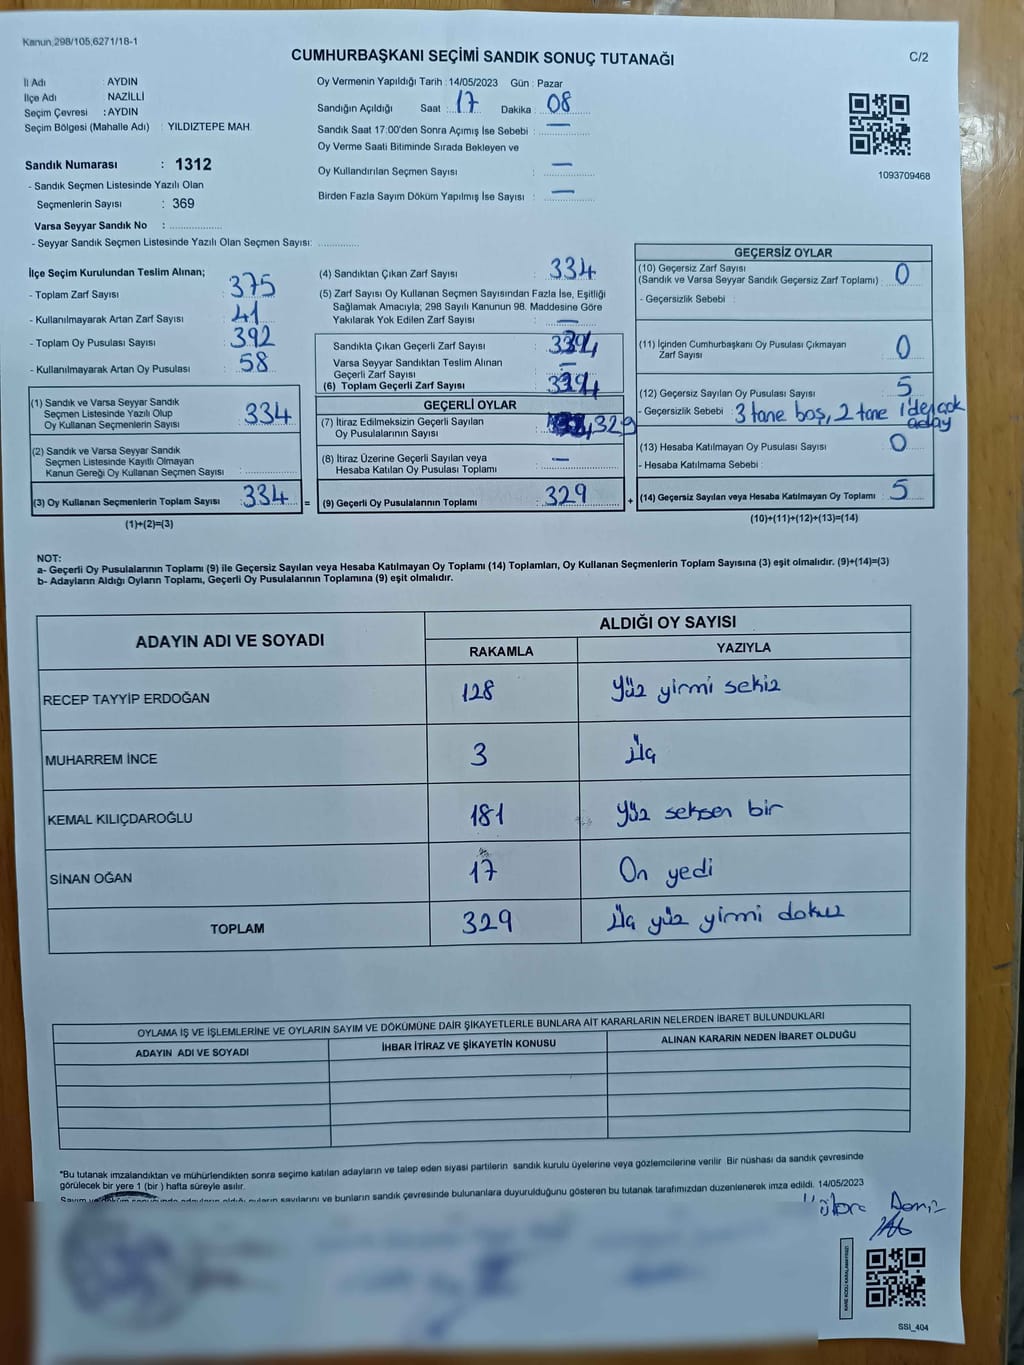 Kanun 298/105,6271/18-1
CUMHURBAŞKANI SEÇİMİ SANDIK SONUÇ TUTANAĞI
C/2
İl Adı : AYDIN
İlçe Adı : NAZİLLİ
Seçim Çevresi : AYDIN
Seçim Bölgesi (Mahalle Adı) : YILDIZTEPE MAH.
Oy Vermenin Yapıldığı Tarih : 14/05/2023 Gün : Pazar
Sandığın Açıldığı Saat : 17 Dakika : 08
Sandık Saat 17:00'den Sonra Açımış İse Sebebi : —
Oy Verme Saati Bitiminde Sırada Bekleyen ve
Oy Kullandırılan Seçmen Sayısı : —
Birden Fazla Sayım Döküm Yapılmış İse Sayısı : —
1093709468
Sandık Numarası : 1312
- Sandık Seçmen Listesinde Yazılı Olan
Seçmenlerin Sayısı : 369
Varsa Seyyar Sandık No :
- Seyyar Sandık Seçmen Listesinde Yazılı Olan Seçmen Sayısı:
İlçe Seçim Kurulundan Teslim Alınan;
- Toplam Zarf Sayısı : 375
- Kullanılmayarak Artan Zarf Sayısı : 41
- Toplam Oy Pusulası Sayısı : 392
- Kullanılmayarak Artan Oy Pusulası : 58
(1) Sandık ve Varsa Seyyar Sandık
Seçmen Listesinde Yazılı Olup
Oy Kullanan Seçmenlerin Sayısı : 334
(2) Sandık ve Varsa Seyyar Sandık
Seçmen Listesinde Kayıtlı Olmayan
Kanun Gereği Oy Kullanan Seçmen Sayısı :
(3) Oy Kullanan Seçmenlerin Toplam Sayısı : 334
(1)+(2)=(3)
(4) Sandıktan Çıkan Zarf Sayısı : 334
(5) Zarf Sayısı Oy Kullanan Seçmen Sayısından Fazla İse, Eşitliği
Sağlamak Amacıyla; 298 Sayılı Kanunun 98. Maddesine Göre
Yakılarak Yok Edilen Zarf Sayısı : —
Sandıkta Çıkan Geçerli Zarf Sayısı :
Varsa Seyyar Sandıktan Teslim Alınan
Geçerli Zarf Sayısı : —
(6) Toplam Geçerli Zarf Sayısı :
GEÇERLİ OYLAR
(7) İtiraz Edilmeksizin Geçerli Sayılan
Oy Pusulalarının Sayısı : 329
(8) İtiraz Üzerine Geçerli Sayılan veya
Hesaba Katılan Oy Pusulası Toplamı : —
= (9) Geçerli Oy Pusulalarının Toplamı : 329
GEÇERSİZ OYLAR
(10) Geçersiz Zarf Sayısı
(Sandık ve Varsa Seyyar Sandık Geçersiz Zarf Toplamı) : 0
- Geçersizlik Sebebi :
(11) İçinden Cumhurbaşkanı Oy Pusulası Çıkmayan
Zarf Sayısı : 0
(12) Geçersiz Sayılan Oy Pusulası Sayısı : 5
- Geçersizlik Sebebi : 3 tane boş, 2 tane 1'den çok
aday
(13) Hesaba Katılmayan Oy Pusulası Sayısı : 0
- Hesaba Katılmama Sebebi :
+ (14) Geçersiz Sayılan veya Hesaba Katılmayan Oy Toplamı : 5
(10)+(11)+(12)+(13)=(14)
NOT:
a- Geçerli Oy Pusulalarının Toplamı (9) ile Geçersiz Sayılan veya Hesaba Katılmayan Oy Toplamı (14) Toplamları, Oy Kullanan Seçmenlerin Toplam Sayısına (3) eşit olmalıdır. (9)+(14)=(3)
b- Adayların Aldığı Oyların Toplamı, Geçerli Oy Pusulalarının Toplamına (9) eşit olmalıdır.
ADAYIN ADI VE SOYADI
ALDIĞI OY SAYISI
RAKAMLA YAZIYLA
RECEP TAYYİP ERDOĞAN 128 Yüz yirmi sekiz
MUHARREM İNCE 3 Üç
KEMAL KILIÇDAROĞLU 181 Yüz seksen bir
SİNAN OĞAN 17 On yedi
TOPLAM 329 Üç yüz yirmi dokuz
OYLAMA İŞ VE İŞLEMLERİNE VE OYLARIN SAYIM VE DÖKÜMÜNE DAİR ŞİKAYETLERLE BUNLARA AİT KARARLARIN NELERDEN İBARET BULUNDUKLARI
ADAYIN ADI VE SOYADI İHBAR İTİRAZ VE ŞİKAYETİN KONUSU ALINAN KARARIN NEDEN İBARET OLDUĞU
*Bu tutanak imzalandıktan ve mühürlendikten sonra seçime katılan adayların ve talep eden siyasi partilerin sandık kurulu üyelerine veya gözlemcilerine verilir Bir nüshası da sandık çevresinde
görülecek bir yere 1 (bir) hafta süreyle asılır.
sayılarını ve bunların sandık çevresinde bulunanlara duyurulduğunu gösteren bu tutanak tarafımızdan düzenlenerek imza edildi. 14/05/2023
SSI_404